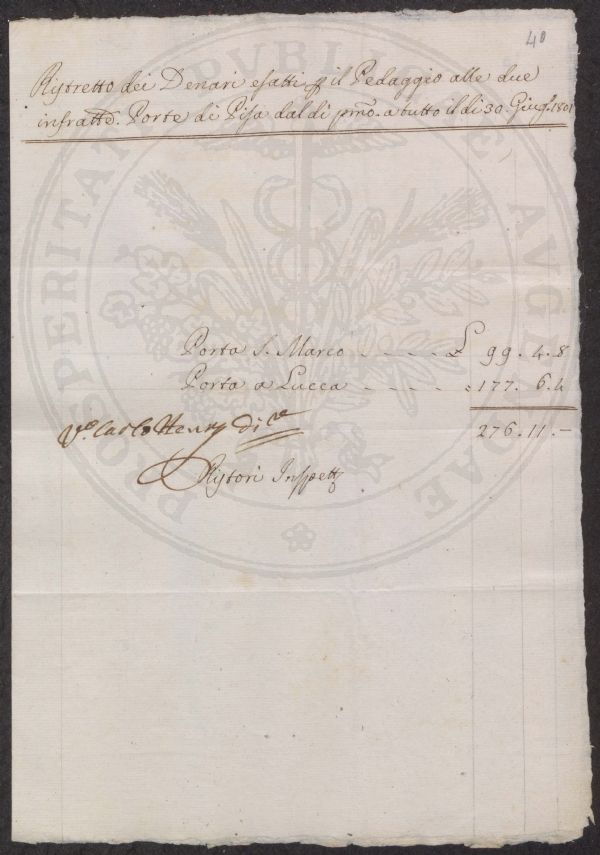 40
Ristretto dei Denari esatti p il Pedaggio alle due
infratte. Porte di Pisa dal dì pmo. a tutto il dì 30. Giug. 1801
Porta S. Marco - - - - £ 99. 4. 8
Porta a Lucca - - - - : 177. 6. 4
276. 11. -
Vo. Carlo Henry Di re
Ristori Inspett
PROSPERITATI PVBLICAE AVGENDAE